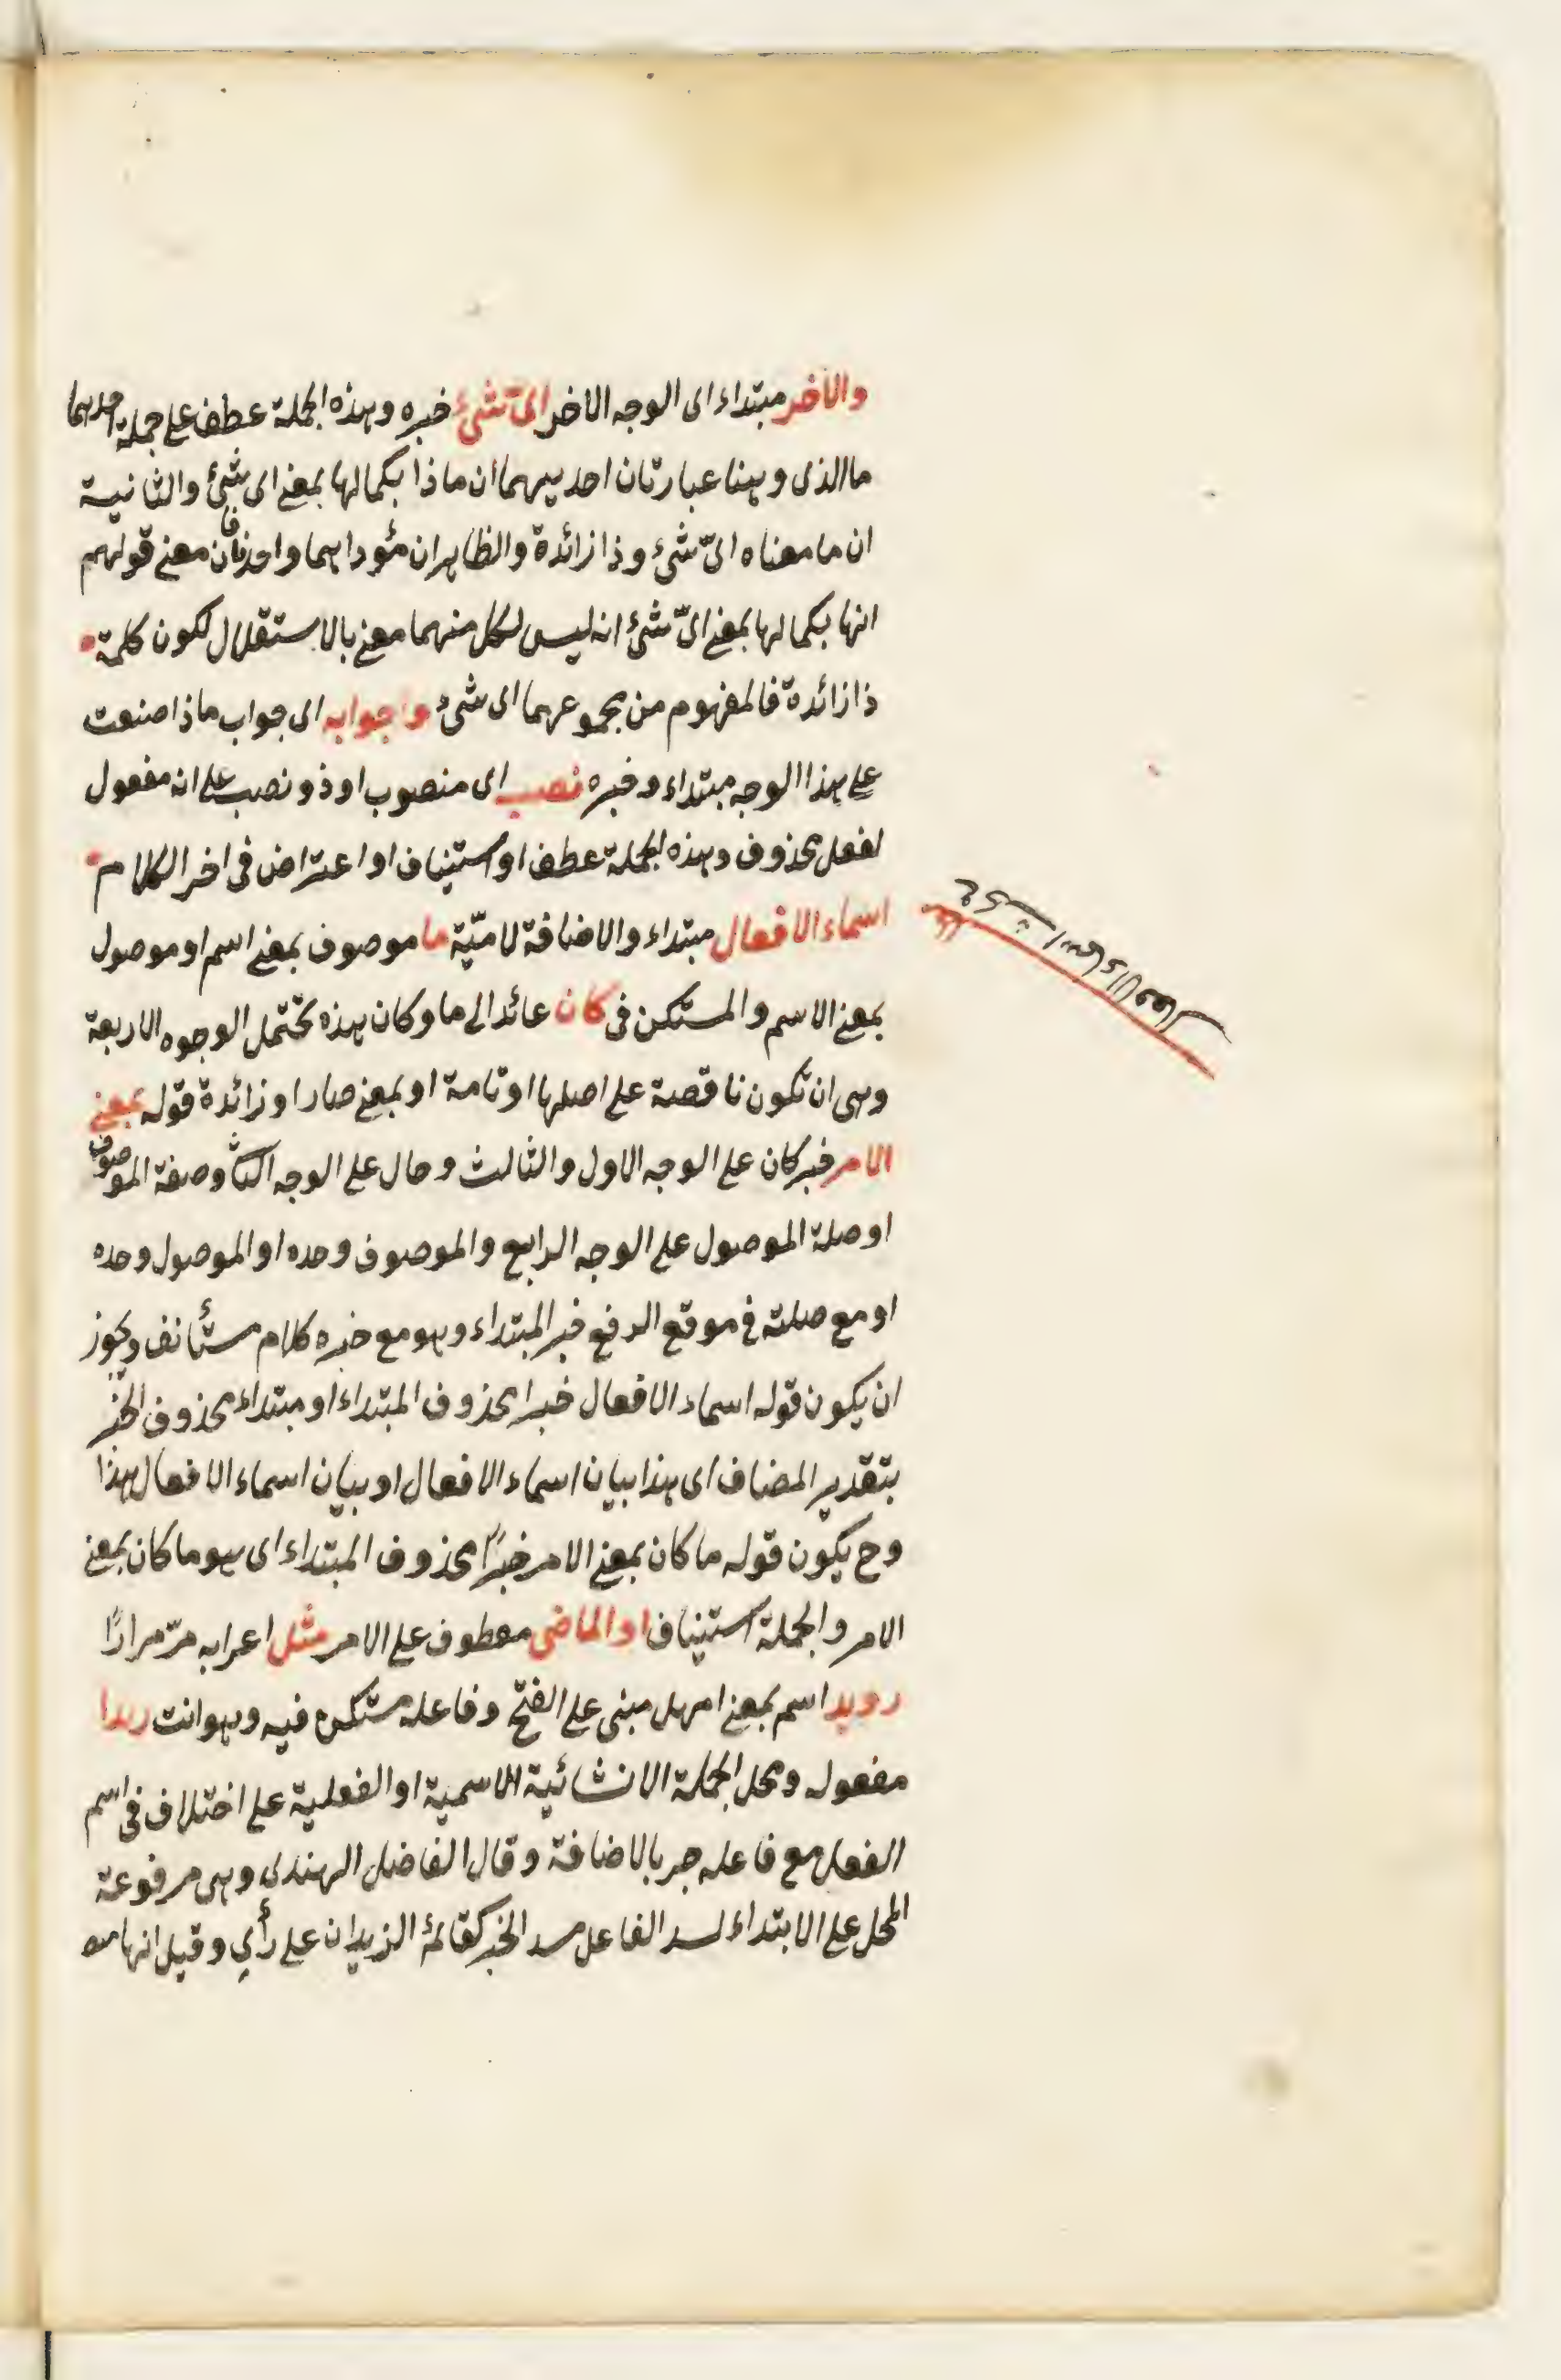 والاخر مبتداء اى الوجه الاخر اىّ شئ خبره وهذه الجملة عطف على جملة احدهما
ما الذى وههنا عبارتان احديهما ان ماذا بكمالها بمعنى اى شئ والثانية
ان ما معناه اىّ شئ وذا زائدة والظاهر ان مئوداهما واحد فان معنى قولهم
انها بكمالها بمعنى اىّ شئ انه ليس لكل منهما معنى بالاستقلال لكون كلمة
ذا زائدة فالمفهوم من مجموعهما اى شئ وجوابه اى جواب ماذا صنعت
على هذا الوجه مبتداء وخبره نصب اى منصوب او ذو نصب على انه مفعول
لفعل محذوف وهذه الجملة عطف او استيناف او اعتراض فى اخر الكلام
اسماء الافعال مبتداء والاضافة لاميّة ما موصوف بمعنى اسم او موصول
بمعنى الاسم والمستكن فى كان عائد الى ما وكان هذه تحتمل الوجوه الاربعة
وهى ان تكون ناقصة على اصلها او تامة او بمعنى صار او زائدة قوله بمعنى
الامر خبر كان على الوجه الاول والثالث وحال على الوجه الثا وصفة الموصوف
او صلة الموصول على الوجه الرابع والموصوف وحده او الموصول وحده
او مع صلته فى موقع الرفع خبر المبتداء وهو مع خبره كلام مستأنف ويجوز
ان يكون قوله اسماء الافعال خبرا محذوف المبتداء او مبتداء محذوف الخبر
بتقدير المضاف اى هذا بيان اسماء الافعال او بيان اسماء الافعال هذا
وح يكون قوله ما كان بمعنى الامر خبرًا محذوف المبتداء اى هو ما كان بمعنى
الامر والجملة استيناف او الماضى معطوف على الامر مثل اعرابه مرّ مرارًا
رويد اسم بمعنى امهل مبنى على الفتح وفاعله مستكن فيه وهو انت زيدا
مفعوله ومحل الجملة الانشائية الاسمية او الفعلية على اختلاف فى اسم
الفعل مع فاعله جر بالاضافة وقال الفاضل الهندى وهى مرفوعة
المحل على الابتداء لسد الفاعل مسد الخبر كقائم الزيدان على رأي وقيل انها